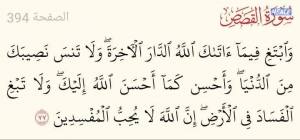 الصفحة 394
سُورَةُ القَصَصِ
وَٱبْتَغِ فِيمَآ ءَاتَىٰكَ ٱللَّهُ ٱلدَّارَ ٱلْءَاخِرَةَ ۖ وَلَا تَنسَ نَصِيبَكَ
مِنَ ٱلدُّنْيَا ۖ وَأَحْسِن كَمَآ أَحْسَنَ ٱللَّهُ إِلَيْكَ ۖ وَلَا تَبْغِ
ٱلْفَسَادَ فِى ٱلْأَرْضِ ۖ إِنَّ ٱللَّهَ لَا يُحِبُّ ٱلْمُفْسِدِينَ ٧٧